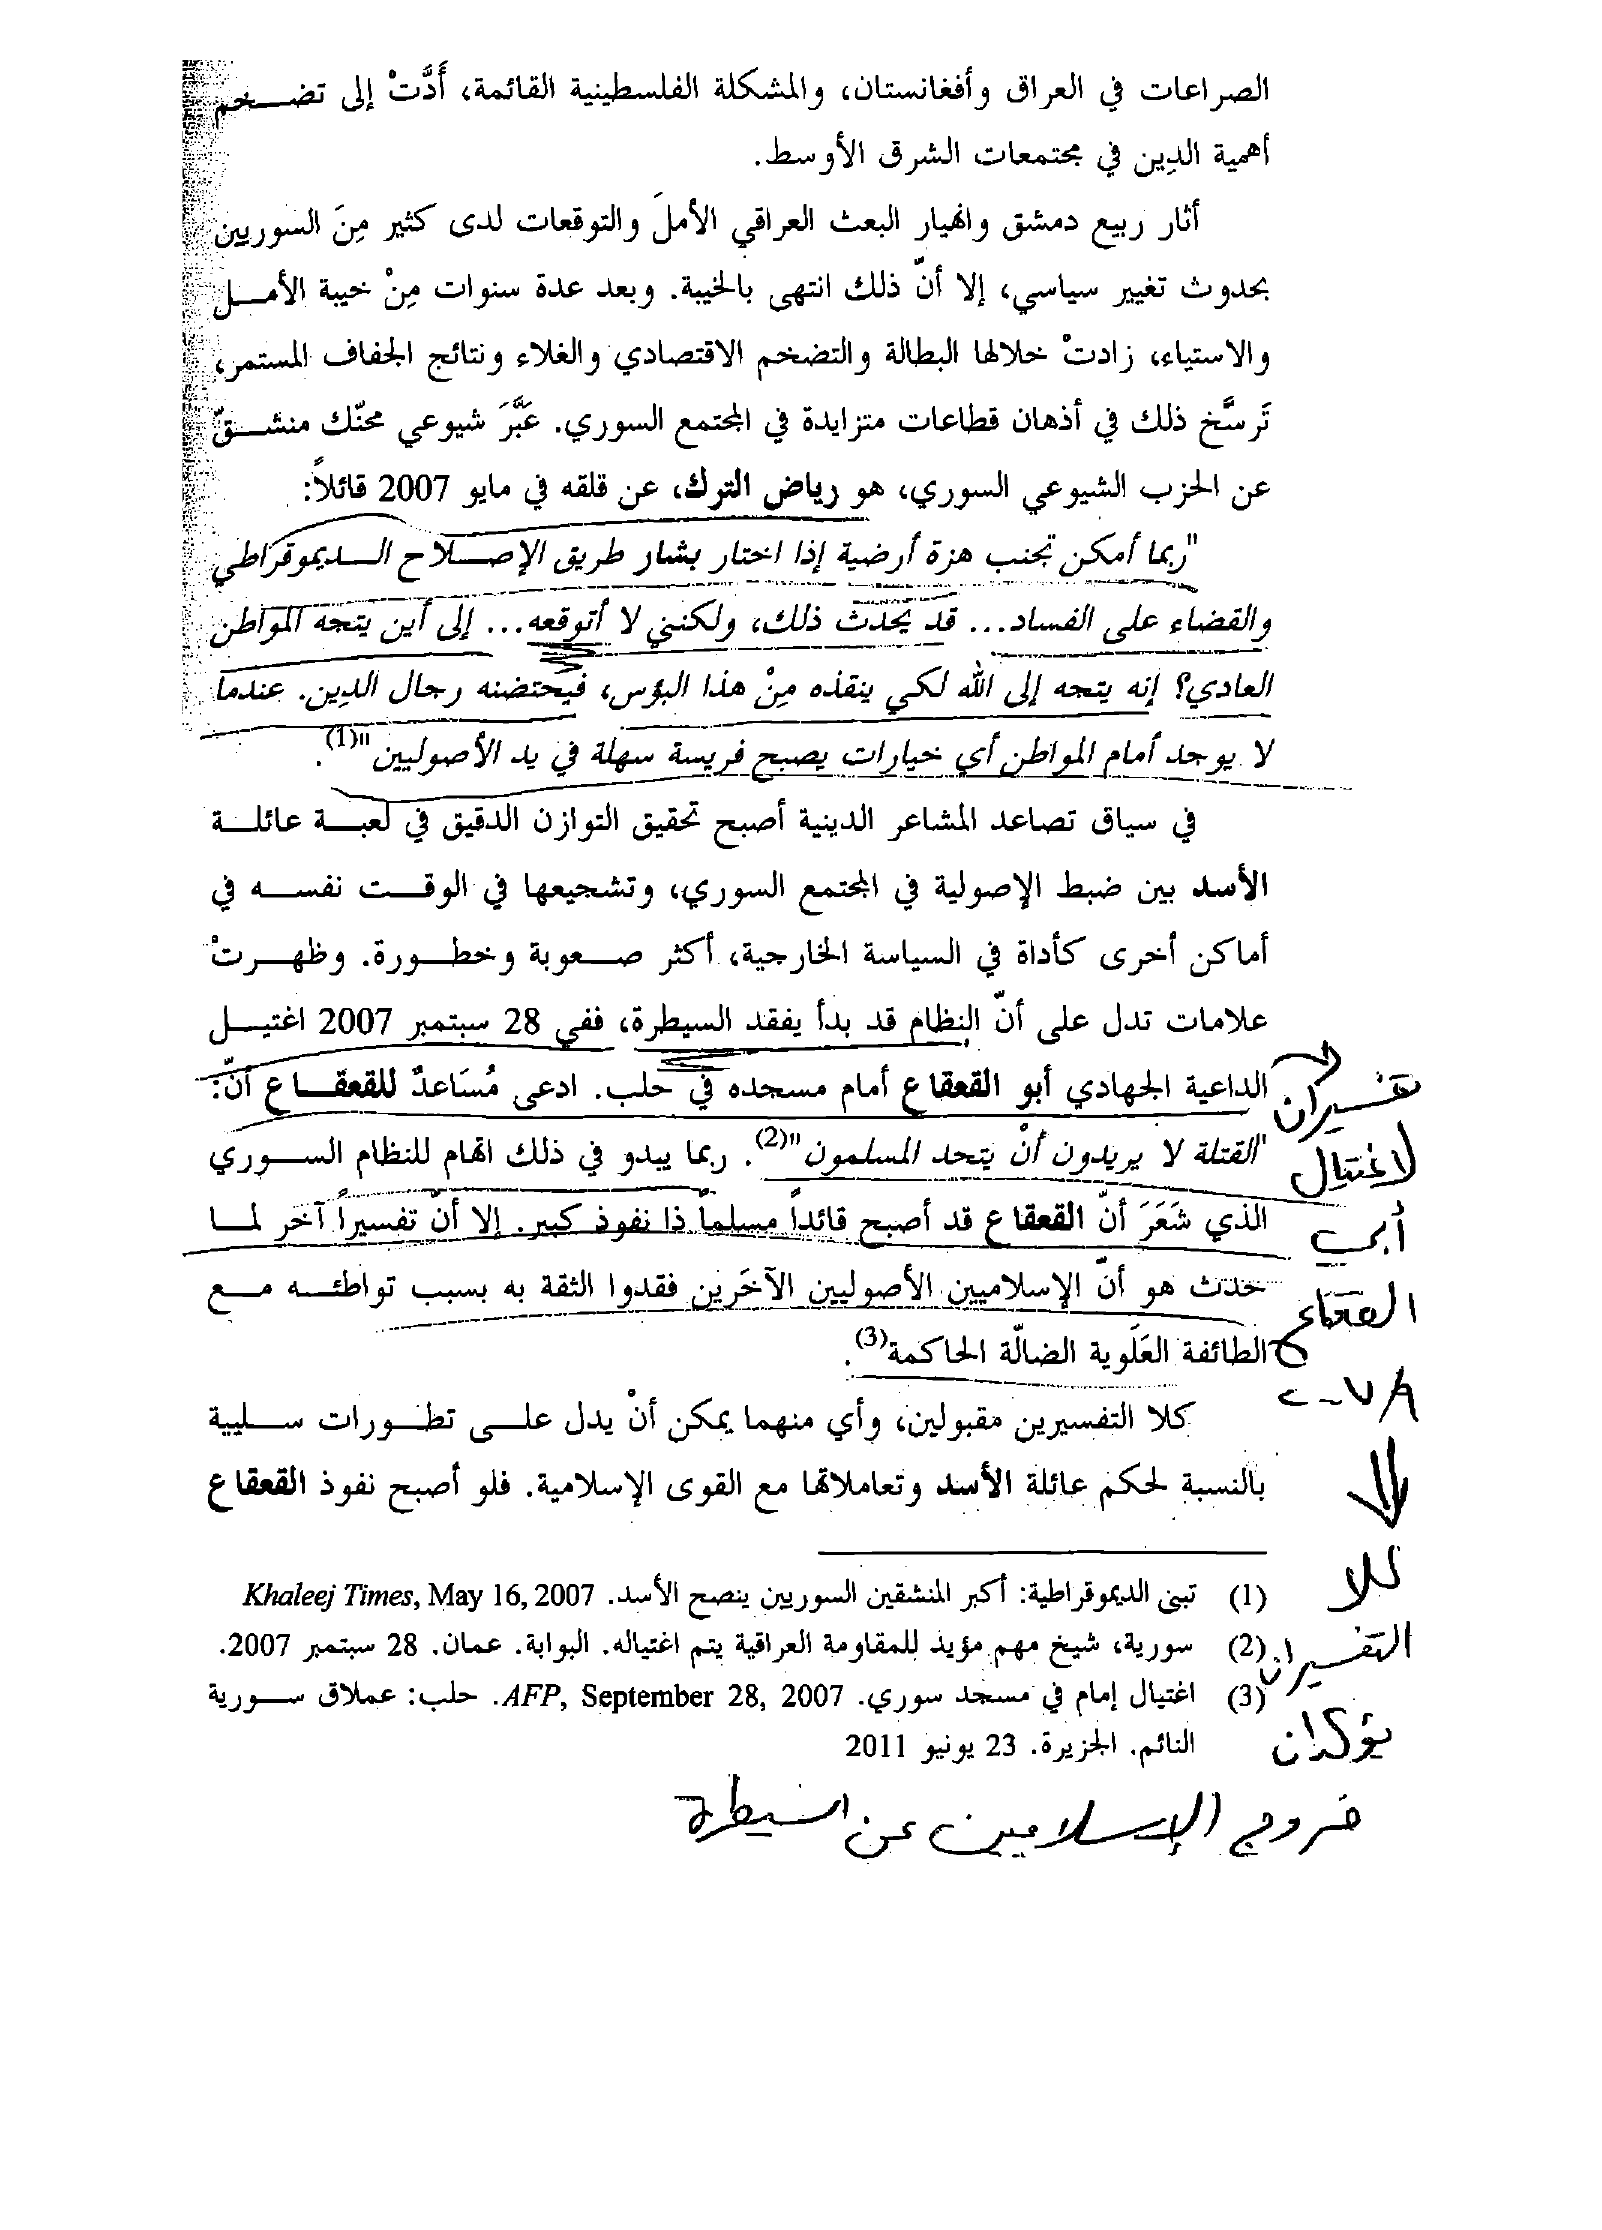 الصراعات في العراق وأفغانستان، والمشكلة الفلسطينية القائمة، أَدَّتْ إلى تضـــخم
أهمية الدِين في مجتمعات الشرق الأوسط.
أثار ربيع دمشق وانهيار البعث العراقي الأملَ والتوقعات لدى كثير مِنَ السوريين
بحدوث تغيير سياسي، إلا أنّ ذلك انتهى بالخيبة. وبعد عدة سنوات مِنْ خيبة الأمـــل
والاستياء، زادتْ خلالها البطالة والتضخم الاقتصادي والغلاء ونتائج الجفاف المستمر،
تَرسَّخ ذلك في أذهان قطاعات متزايدة في المجتمع السوري. عَبَّرَ شيوعي محنّك منشـــقّ
عن الحزب الشيوعي السوري، هو رياض الترك، عن قلقه في مايو 2007 قائلاً:
"ربما أمكن تجنب هزة أرضية إذا اختار بشار طريق الإصـــلاح الـــديموقراطي
والقضاء على الفساد... قد يحدث ذلك، ولكنني لا أتوقعه... إلى أين يتجه المواطن
العادي؟ إنه يتجه إلى الله لكي ينقذه مِنْ هذا البؤس، فيحتضنه رجال الدِين. عندما
لا يوجد أمام المواطن أي خيارات يصبح فريسة سهلة في يد الأصوليين"(1).
في سياق تصاعد المشاعر الدينية أصبح تحقيق التوازن الدقيق في لعبـــة عائلـــة
الأسد بين ضبط الإصولية في المجتمع السوري، وتشجيعها في الوقـــت نفســـه في
أماكن أخرى كأداة في السياسة الخارجية، أكثر صـــعوبة وخطـــورة. وظهـــرتْ
علامات تدل على أنّ النظام قد بدأ يفقد السيطرة، ففي 28 سبتمبر 2007 اغتيـــل
الداعية الجهادي أبو القعقاع أمام مسجده في حلب. ادعى مُسَاعدٌ للقعقـــاع أنّ:
"القتلة لا يريدون أنْ يتحد المسلمون"(2). ربما يبدو في ذلك اتهام للنظام الســـوري
الذي شَعَرَ أنّ القعقاع قد أصبح قائداً مسلماً ذا نفوذ كبير. إلا أنّ تفسيراً آخر لمـــا
حدث هو أنّ الإسلاميين الأصوليين الآخَرين فقدوا الثقة به بسبب تواطئـــه مـــع
الطائفة العَلَوية الضالّة الحاكمة(3).
كلا التفسيرين مقبولين، وأي منهما يمكن أنْ يدل علـــى تطـــورات ســـلبية
بالنسبة لحكم عائلة الأسد وتعاملاتها مع القوى الإسلامية. فلو أصبح نفوذ القعقاع
(1) تبني الديموقراطية: أكبر المنشقين السوريين ينصح الأسد. Khaleej Times, May 16, 2007
(2) سورية، شيخ مهم مؤيد للمقاومة العراقية يتم اغتياله. البوابة. عمان. 28 سبتمبر 2007.
(3) اغتيال إمام في مسجد سوري. AFP, September 28, 2007. حلب: عملاق ســـورية
النائم. الجزيرة. 23 يونيو 2011
تفسيران
لاغتيال
أبي
القعقاع
كلا
التفسيران
يؤكدان
خروج الإسلاميين عن السيطرة